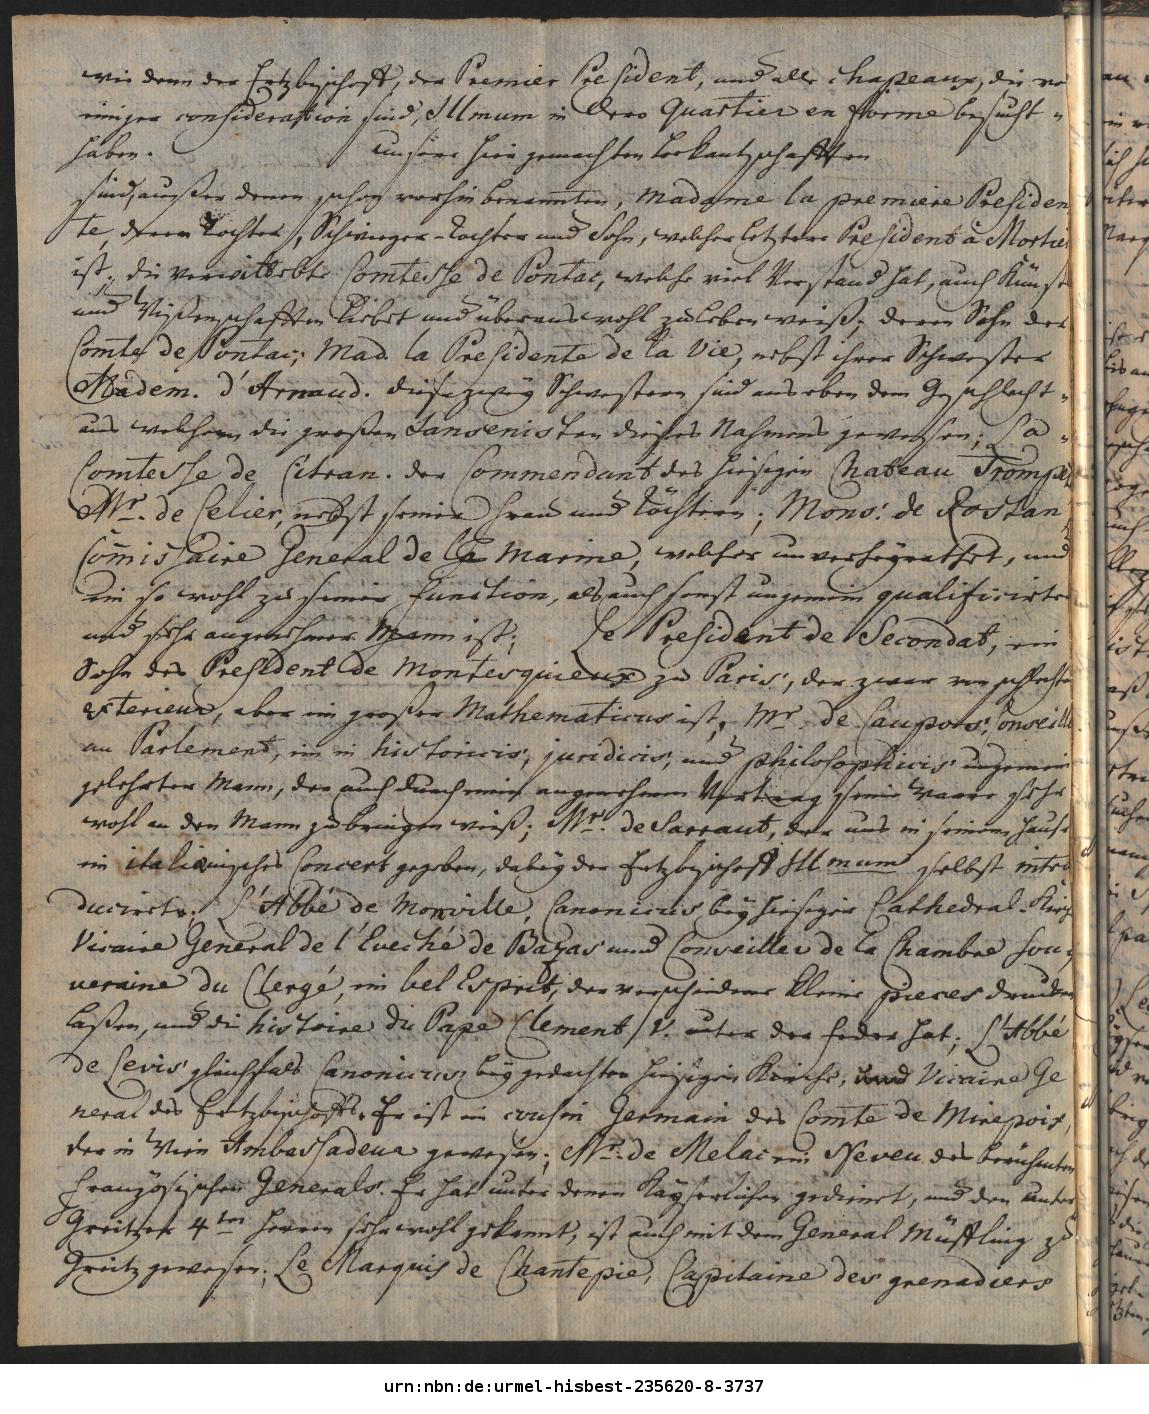 wie denn der Ertzbischoff, der Premier President, und alle chapeaux, die von
einiger consideration sind, Illmum in Dero Quartier en forme besucht
haben. unsere hier gemachten Bekantschafften
sind, außer denen schon vorhin benannten, Madame la premiere Presiden
te, deren Tochter, Schwieger-Tochter und Sohn, welcher letztere President à Mortier
ist; die verwittebte Comtesse de Pontac, welche viel Verstand hat, auch Künste
und Wißenschafften liebet und überaus wohl zu leben weiß; deren Sohn der
Comte de Pontac; Mad. la Presidente de la Vie, nebst ihrer Schwester
Madem. d'Arnaud. diese zwey Schwestern sind aus eben dem Geschlecht
aus welchem die großen Jansenisten dieses Nahmens gewesen; La
Comtesse de Citran. der Commendant des hiesigen Chateau Trompet
Mr. de Celier, nebst seiner Frau und Töchtern; Mons: de Rostan
Com̄issaire General de la Marine, welcher unverheyrathet, und
ein so wohl zu seiner Function, als auch sonst ungemein qualificirter
und sehr angenehmer Mann ist; Le President de Secondat, ein
Sohn des President de Montesquieux zu Paris, der zwar von schlechten
exterieur, aber ein großer Mathematicus ist; Mr. de Caupos, Conseill
au Parlement, ein in historicis, juridicis, und philosophicis ungemein
gelehrter Mann, der auch durch einen angenehmen Vortrag seine Waare sehr
wohl an den Mann zu bringen weiß; Mr. de Sarraut, der uns in seinem Hause
ein italienisches Concert gegeben, dabey der Ertzbischoff Illmum selbst intro
ducirete. L'Abbé de Monville, Canonicus bey hiesiger Cathedral-Kirch
Vicaire General de l'Eveché de Bazas und Conseiller de la Chambre sou
veraine du Clergé, ein bel Esprit, der verschiedene kleine pieces drucken
laßen, und die histoire du Pape Clement V. unter der Feder hat; L'Abbé
de Levis gleichfals Canonicus bey gedachter hiesigen Kirche, und Vicaire Ge
neral des Ertzbischoffs. Er ist ein cousin Germain des Comte de Mirepoix,
der in Wien Ambassadeur gewesen; Mr. de Melac ein Neveu des berühmten
Französischen Generals. Er hat unter denen Kayserlichen gedienet, und den unter
Greitzer 4ten Herrn sehr wohl gekennt, ist auch mit dem General Müffling zu
Greitz gewesen; Le Marquis de Chantepie, Capitaine des grenadiers
urn:nbn:de:urmel-hisbest-235620-8-3737